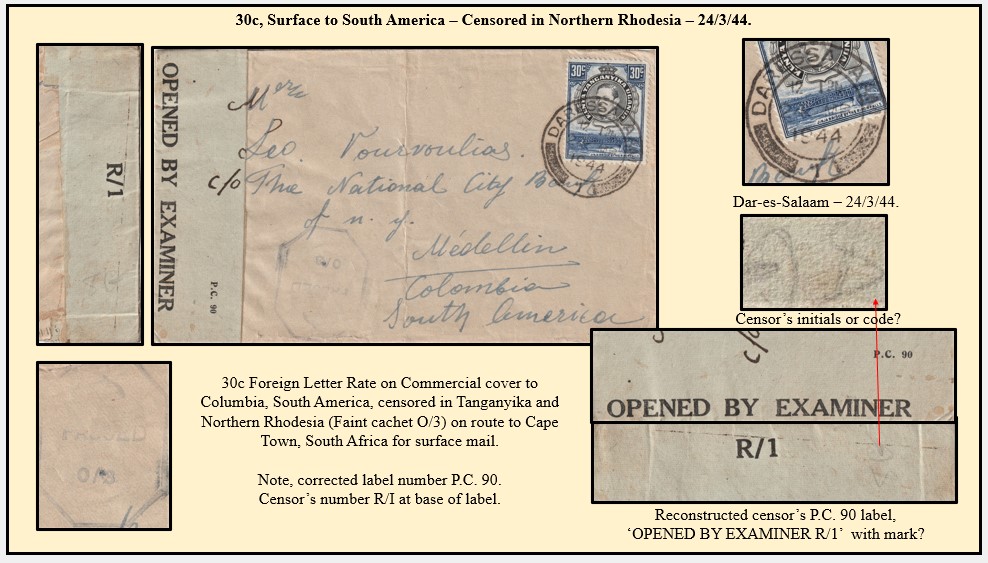 30c, Surface to South America – Censored in Northern Rhodesia – 24/3/44.
R/1
OPENED BY EXAMINER
P.C. 90
Mrs
Leo Vourvoulias.
c/o The National City Bank
of n. y.
Médellin
Colombia
South America
30c 30c
DAR-ES-SALAAM
1944
Dar-es-Salaam – 24/3/44.
Censor’s initials or code?
c/o
P.C. 90
OPENED BY EXAMINER
R/1
Reconstructed censor’s P.C. 90 label,
‘OPENED BY EXAMINER R/1’ with mark?
30c Foreign Letter Rate on Commercial cover to
Columbia, South America, censored in Tanganyika and
Northern Rhodesia (Faint cachet O/3) on route to Cape
Town, South Africa for surface mail.
Note, corrected label number P.C. 90.
Censor’s number R/I at base of label.